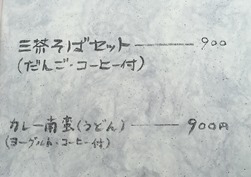 三茶そばセット――900
(だんご・コーヒー付)
カレー南蛮(うどん)――900円
(ヨーグルト・コーヒー付)